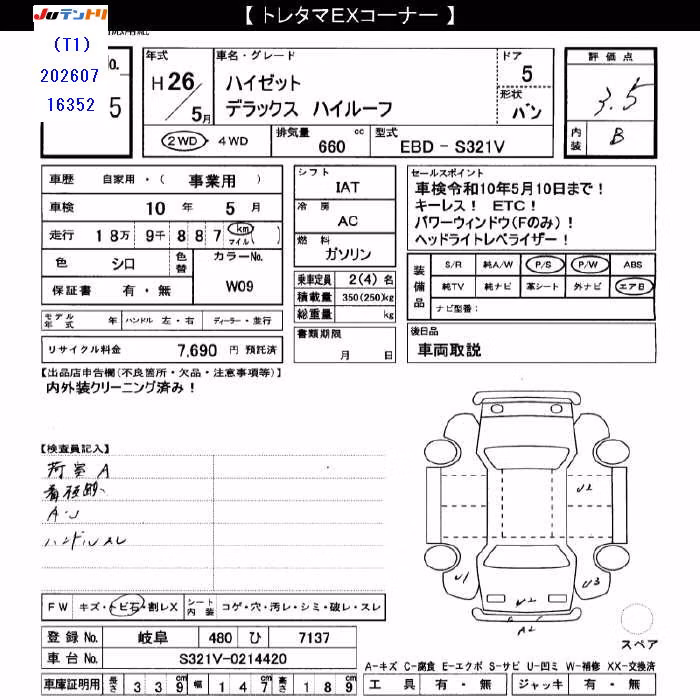 【 トレタマEXコーナー 】
JUテントリ
(T1)
202607
16352
No.
5
年式
H 26 / 5月
車名・グレード
ハイゼット
デラックス ハイルーフ
ドア
5
形状
バン
評価点
3.5
内装
B
2WD・4WD
排気量 660 cc
型式 EBD - S321V
車歴 自家用・( 事業用 )
車検 10 年 5 月
走行 18万 9千 8 8 7 km マイル( )
色 シロ 色替
カラーNo.
W09
保証書 有・無
シフト
IAT
冷房
AC
燃料
ガソリン
乗車定員 2(4) 名
積載量 350(250)kg
総重量 kg
セールスポイント
車検令和10年5月10日まで!
キーレス! ETC!
パワーウィンドウ(Fのみ)!
ヘッドライトレベライザー!
装備品
S/R 純A/W P/S P/W ABS
純TV 純ナビ 革シート 外ナビ エアB
ナビ型番:
モデル年式 年 ハンドル 左・右 ディーラー・並行
リサイクル料金 7,690 円 預託済
書類期限
月 日
後日品
車両取説
【出品店申告欄(不良箇所・欠品・注意事項等)】
内外装クリーニング済み!
【検査員記入】
荷室 A
A・U
ハンドルスレ
U2
U1
U3
A2
FW キズ・トビ石・割レX シート内装 コゲ・穴・汚レ・シミ・破レ・スレ
スペア
登録 No. 岐阜 480 ひ 7137
車台 No. S321V-0214420
車庫証明用 長さ 3 3 9 幅 1 4 7 高さ 1 8 9
A-キズ C-腐食 E-エクボ S-サビ U-凹ミ W-補修 XX-交換済
工具 有・無 ジャッキ 有・無